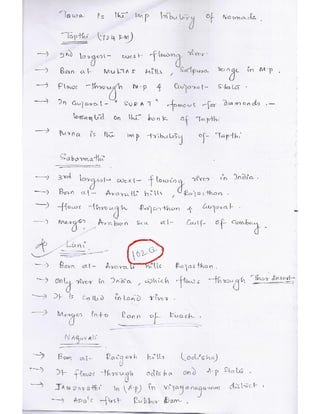 Tawa is the imp tributary of Narmada.
Tapthi (724 KM)
→ 2nd largest- west flowing river
→ Born at MULTAS hills, Satpura range in M.P.
→ Flows through M.P & Gujarat States.
→ In Gujarat- "SURAT" famous for damonds.-
located on the bank of Tapthi
→ Purna is the imp tributary of- Tapthi
Sabarmathi
→ 3rd largest- west- flowing river in India.
→ Born at- Aravalli hills, Rajasthan.
→ flows through Rajasthan & Gujarat.
→ Merges Arabian sea at- Gulf- of Combay.
Luni
102G
→ Born at- Aravali hills Rajasthan.
→ only river in India, which flows through Thar Desert-
→ It is called inland river.
→ Merges into Rann of Kuach.
Nagavali
→ Born at- Raigarh hills (odisha)
→ It flows through odisha and A.p States.
→ Jamjavathi in (A.p) in vijayanagaram district.
→ Asia's first Rubber Dam.